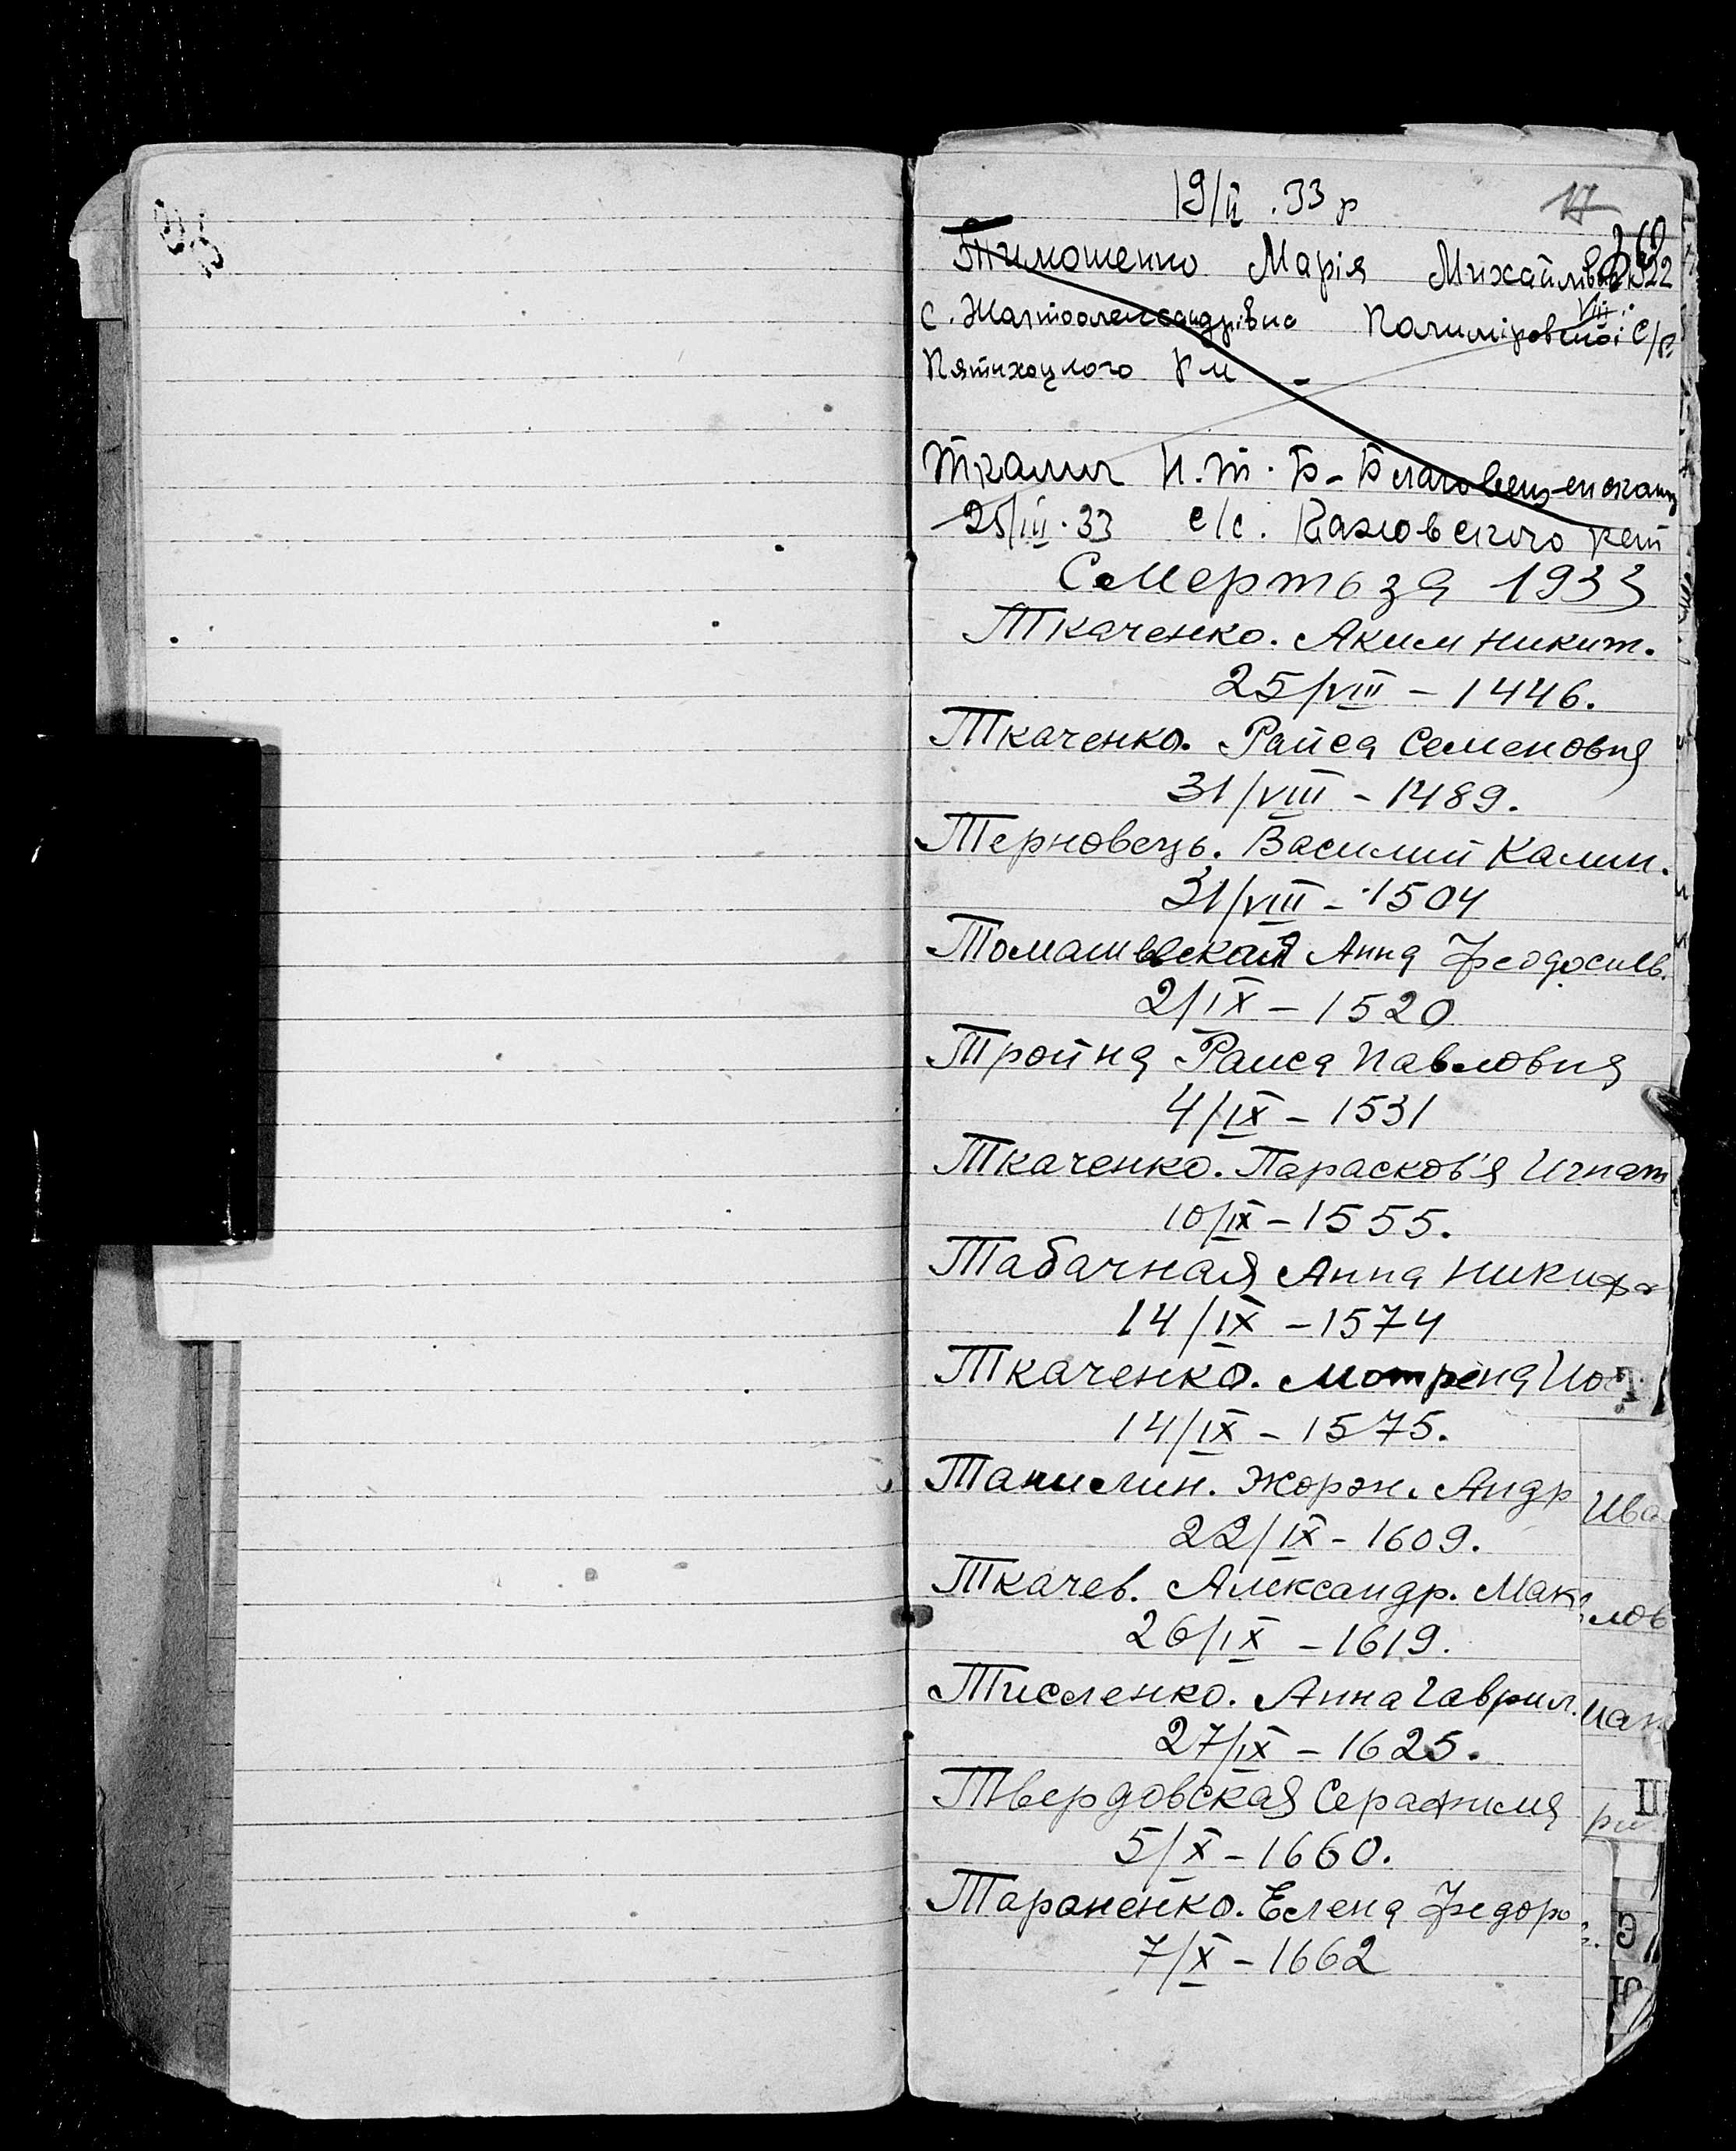 19/II. 33 р
17
Тимошенко Марія Михайлівна
с. Жовтоолександрівка
Пятихацкого Р-н
Ткалич И. Т. Б-Благовещенская
25/III. 33 с/с. Каховского
Смерть за 1933
Ткаченко. Аким Никит.
25/VIII – 1446.
Ткаченко. Раиса Семеновна
31/VIII – 1489.
Терновець. Василий Калин.
31/VIII – 1504
Томашевская Анна Феодосиев.
2/IX – 1520
Тройна Раиса Павловна
4/IX – 1531
Ткаченко. Парасков'я Игнат
10/IX – 1555.
Табачная Анна Никифо
14/IX – 1574
Ткаченко. Мотрена Ио
14/IX – 1575.
Жорж. Андр
22/IX – 1609.
Ткачев. Александр. Мак
26/IX – 1619.
Тисленко. Анна Гаврил.
27/IX – 1625.
Твердовская Серафима
5/X – 1660.
Тараненко. Елена Федоро
7/X – 1662
Т
Э
Ю